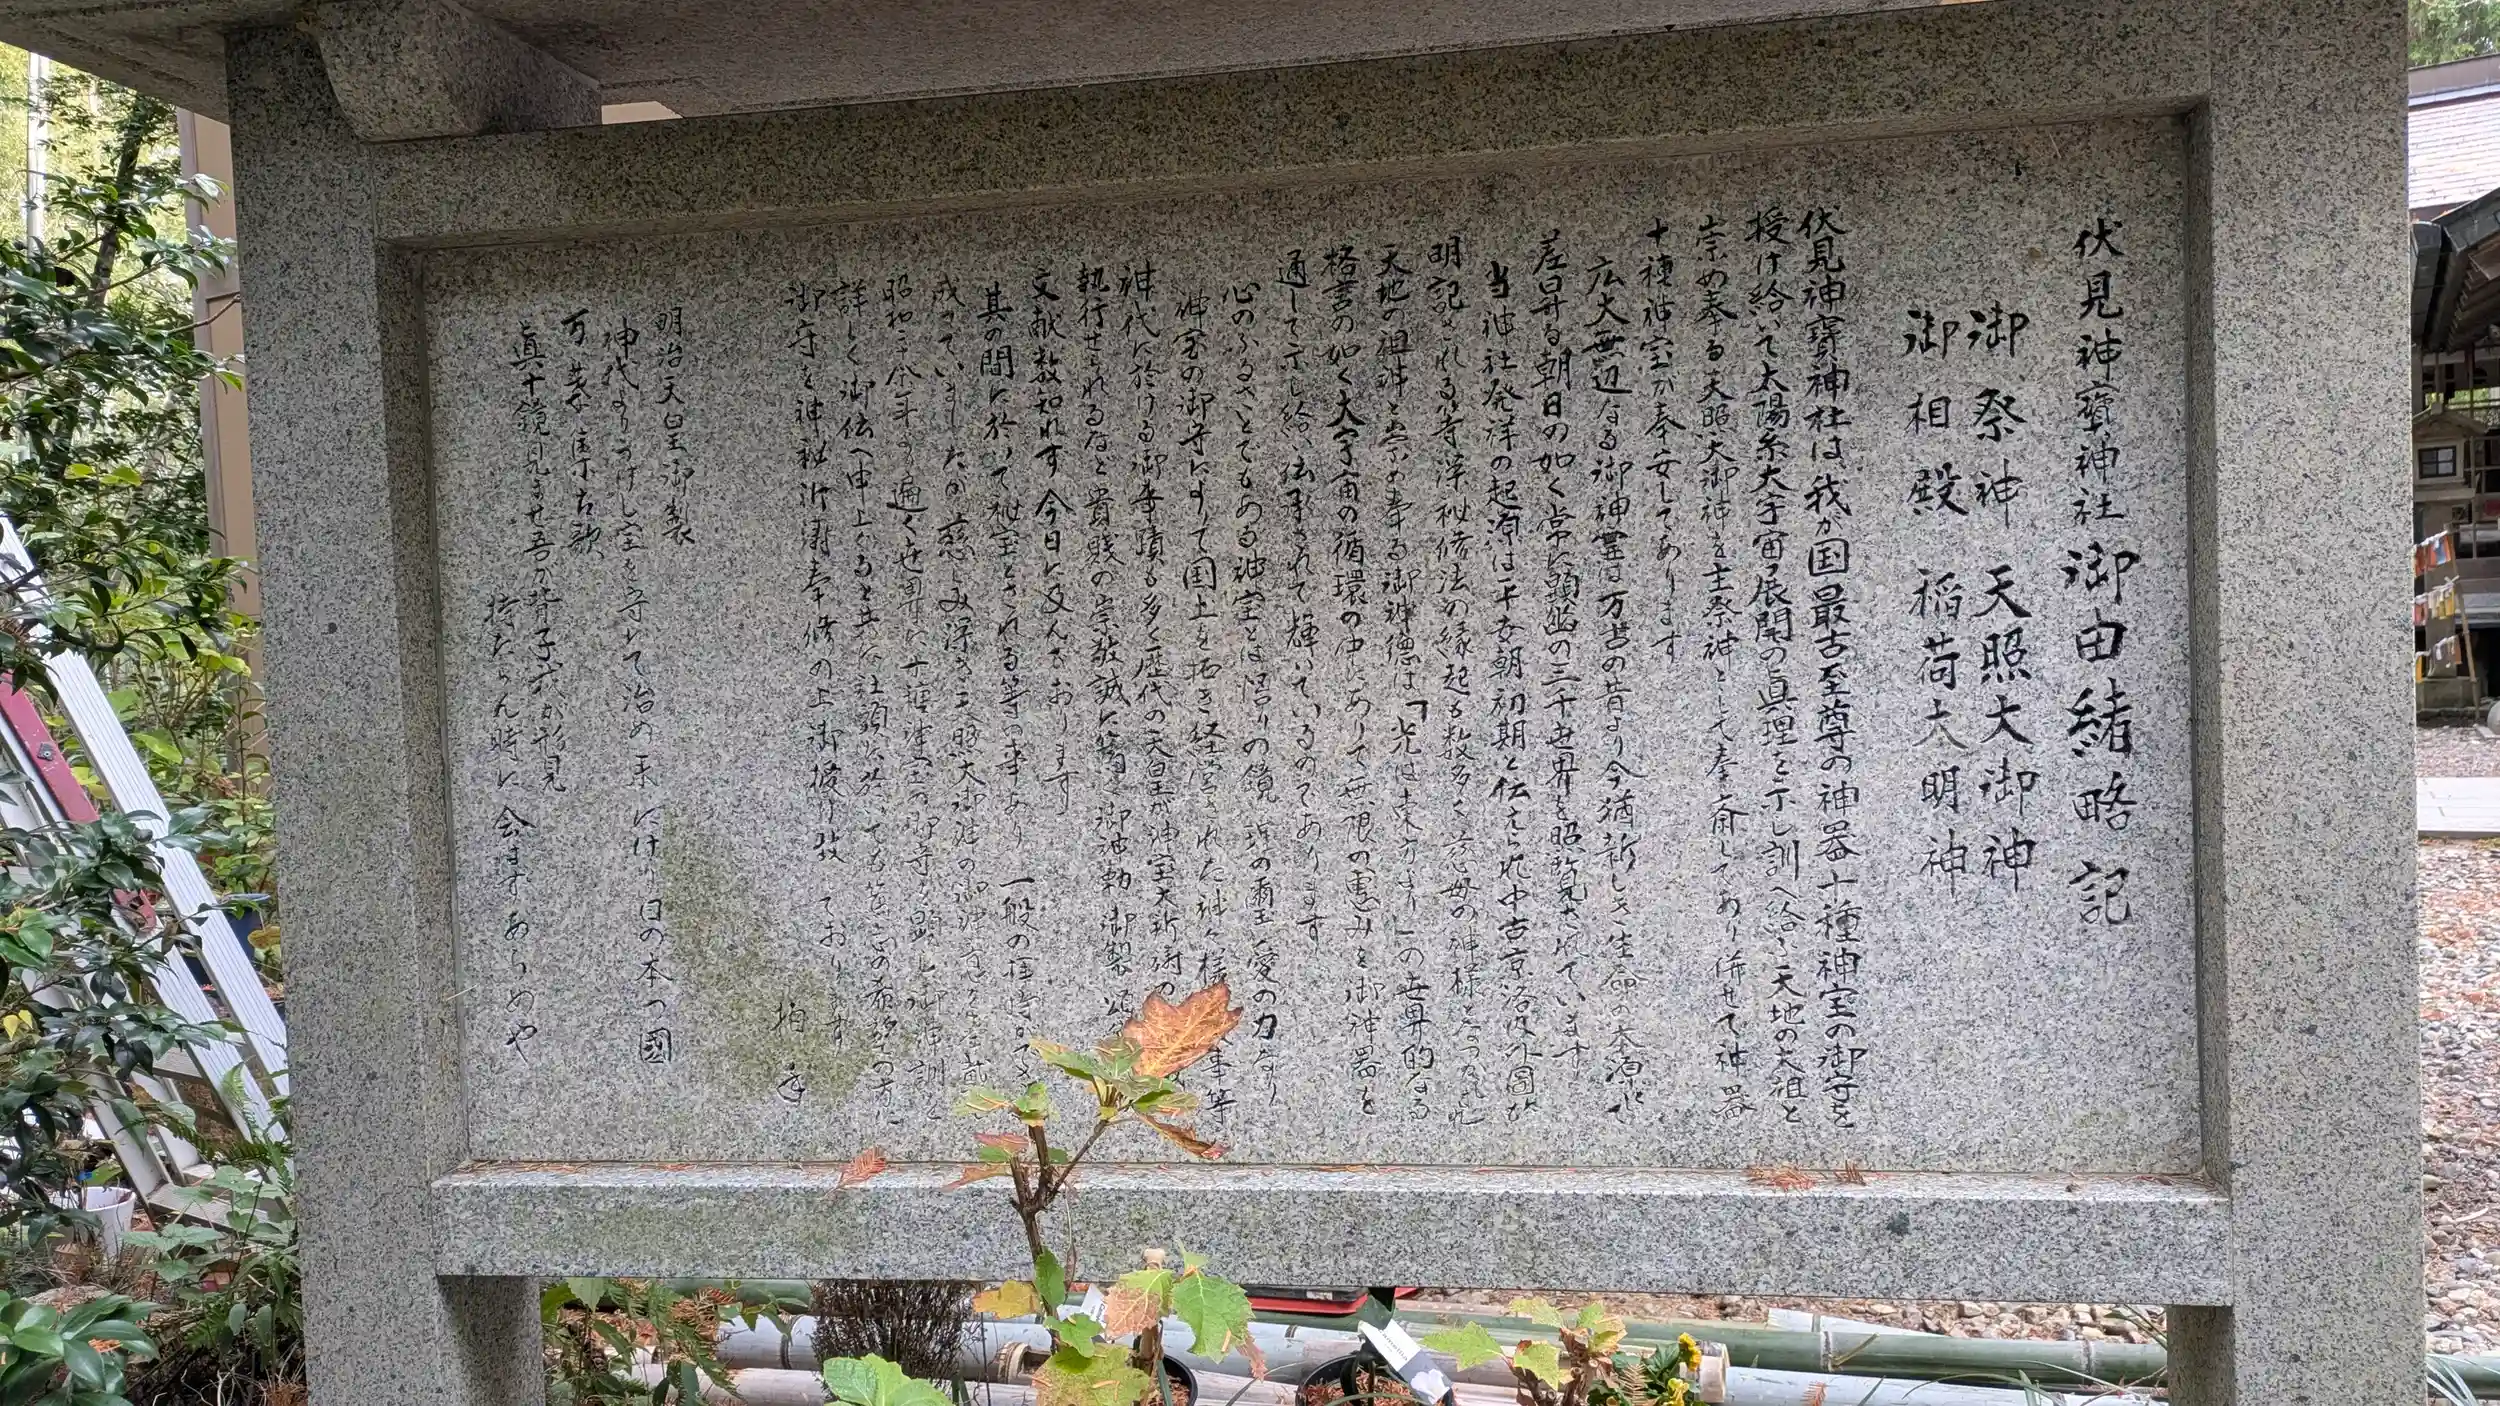 伏見神寶神社御由緒略記
御祭神 天照大御神
御相殿 稲荷大明神
伏見神寶神社は、我が国最古至尊の神器十種神宝の御守を
授け給いて太陽系大宇宙の展開の真理を示し訓へ給ふ天地の大祖と
崇め奉る天照大御神を主祭神として奉斎してあり併せて神器
十種神宝が奉安してあります
広大無辺なる御神霊は万古の昔より今猶新しき生命の本源にて
差昇る朝日の如く常に顕幽の三千世界を昭覧されています
当神社発祥の起源は平安朝初期と伝へられ中古京洛内外図が
明記される等深秘修法の縁起も数多く慈母の神様となつかしまれ
天地の祖神と崇め奉る御神徳は「光は東方より」の世界的なる
格言の如く大宇宙の循環の中にありて無限の恵みを御神器を
通して示し給い伝承されて輝いているのであります
心のふるさとでもある神宝とは悟りの鏡 珠の爾玉 愛の力なり
神宝の御守によりて国土を拓き経営された神々様 事等
神代に於ける御事蹟も多く歴代の天皇が神宝大祈祷の
執行せられるなど貴賎の崇敬誠に篤く御神勅 御製 頌
文献数知れず今日に及んでおります
其の間に於いて秘宝とされる等の事あり 一般の拝時ができ
成っていましたが慈しみ深き天照大御神の御神
昭和三十余年より遍く世界に十種神宝の御守を顕し御神訓を
詳しく御伝へ申上ぐると共に社頭に於いても篤志の希望の方に
御守を神秘祈祷奉修の上御授け致しております
拍手
明治天皇御製
神代よりうけし宝を守りて治め来にけり日の本つ國
万葉集古歌
真十鏡見ませ吾が背子我が形見
持たらん時に会はずあらめや